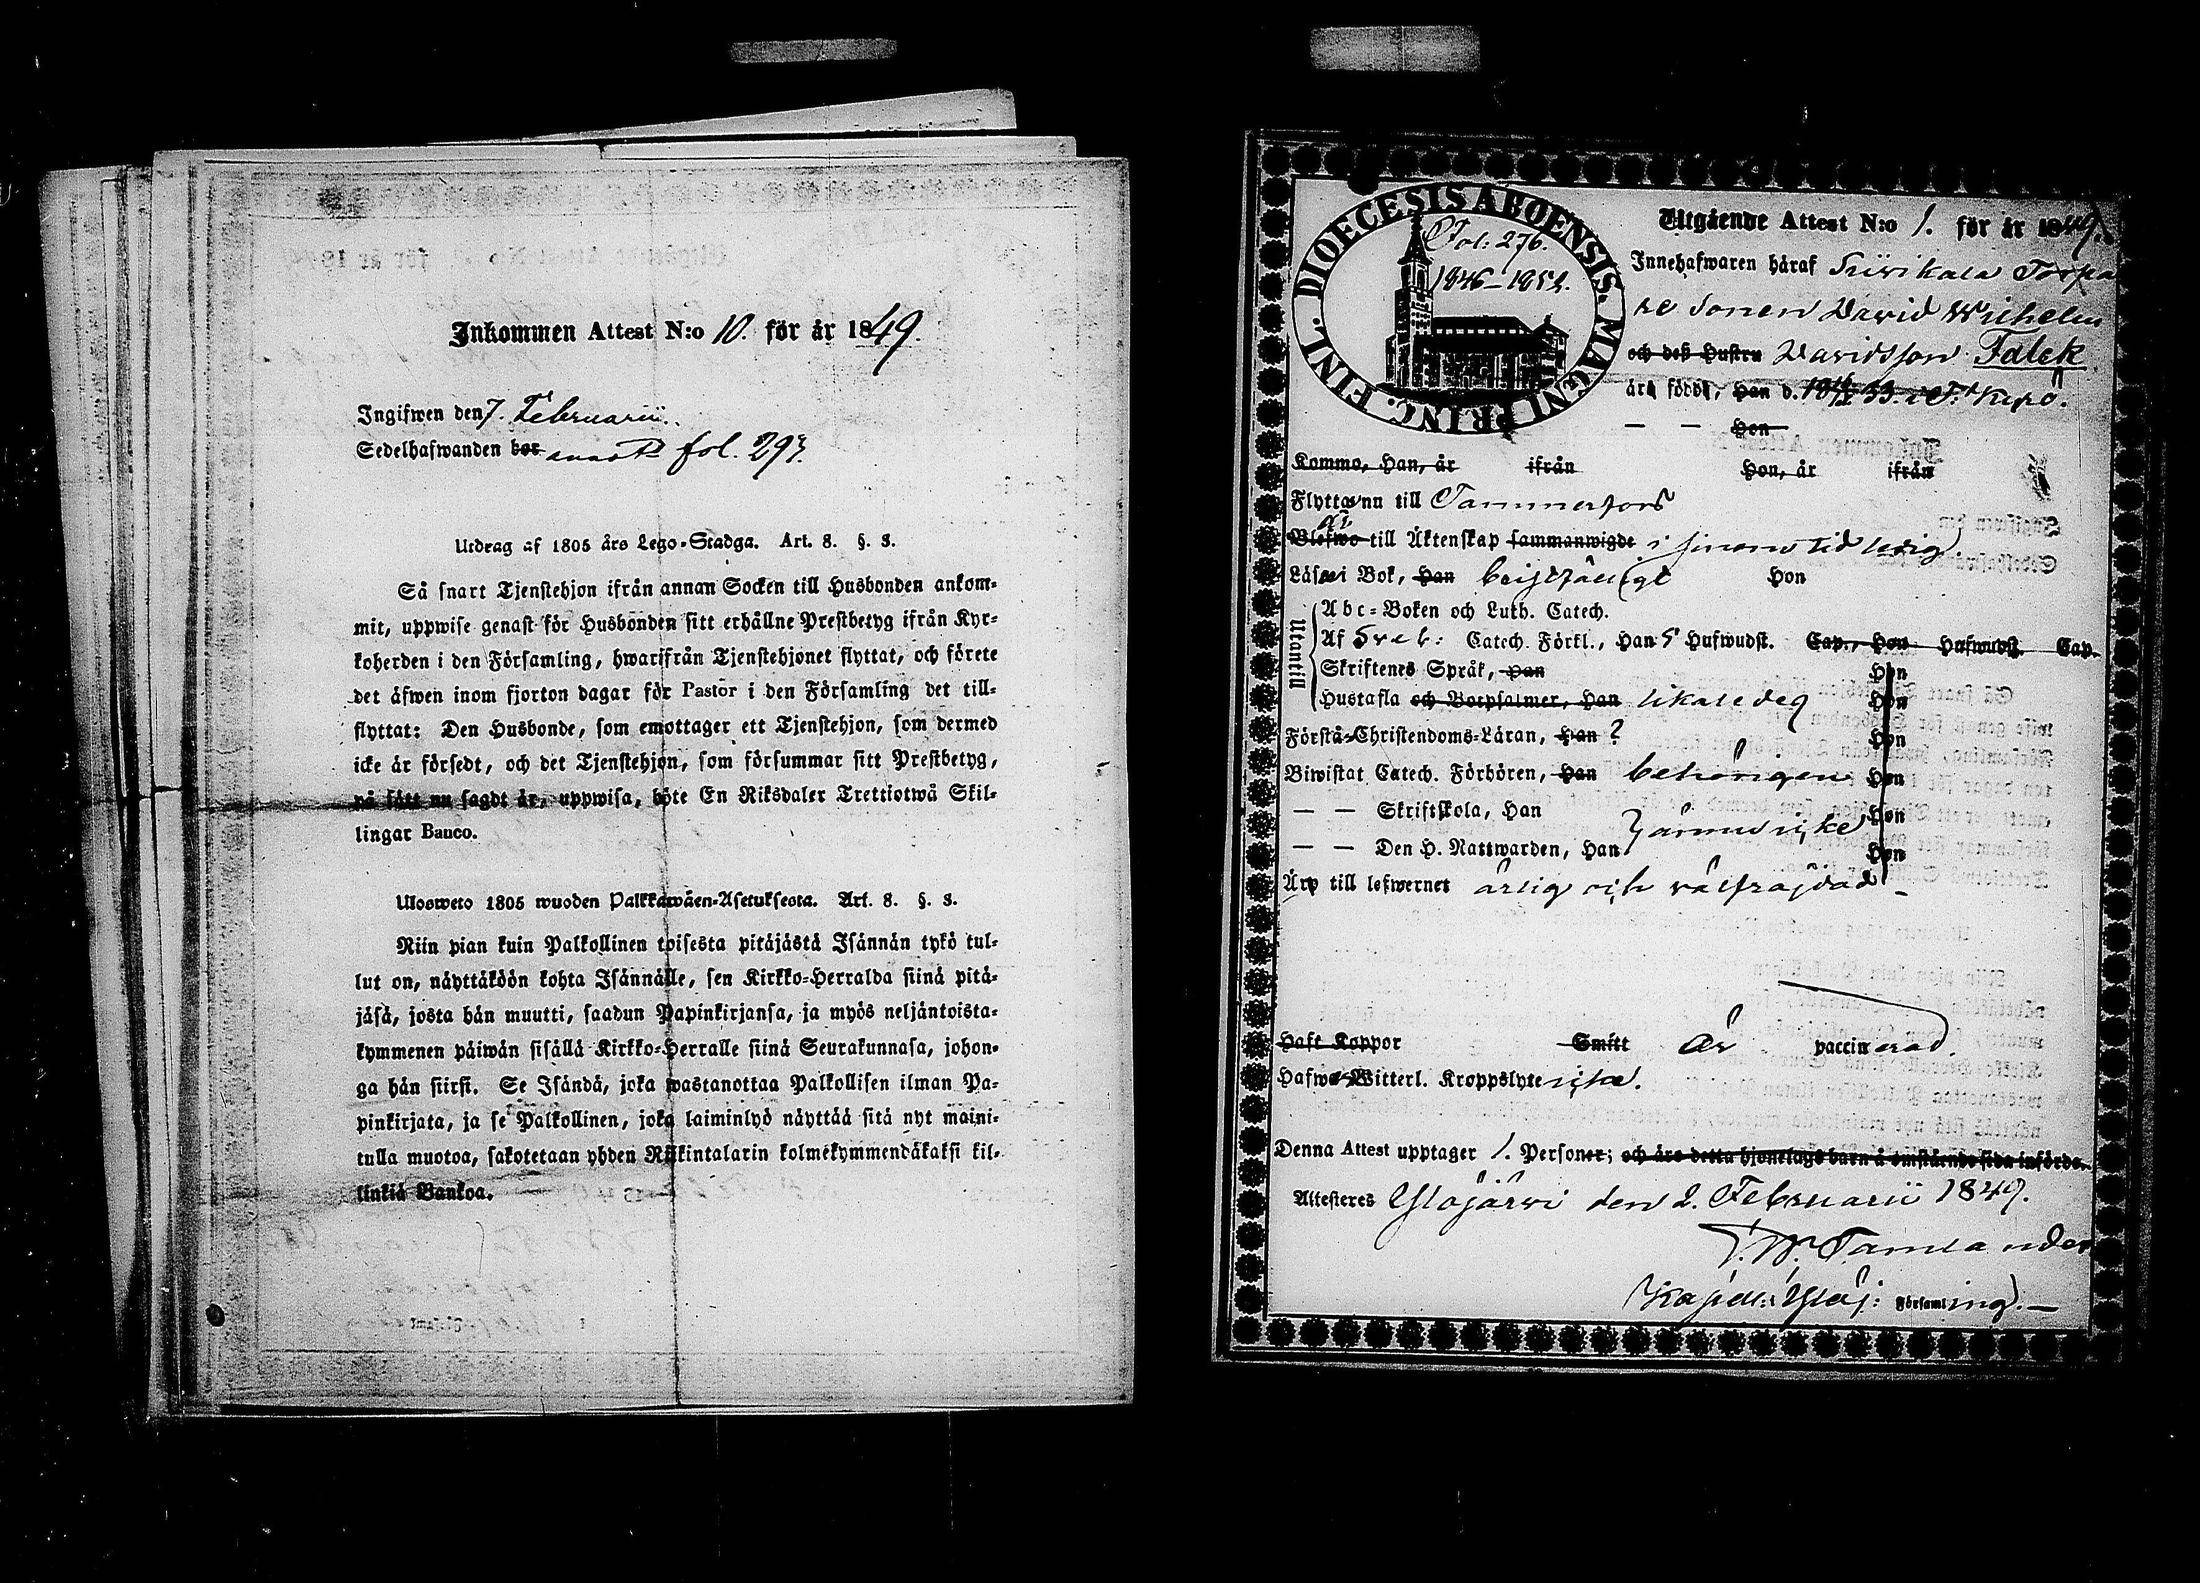 Inkommen Attest N:o 10. för år 1849.
Ingifwen den 7. Februarii.
Sedelhafwanden bor fol. 293.
Utdrag af 1805 års Lego-Stadga. Art. 8. §. 3.
Så snart Tjenstehjon ifrån annan Socken till Husbonden ankom-
mit, uppwise genast för Husbonden sitt erhållne Prestbetyg ifrån Kyr-
koherden i den Församling, hwarifrån Tjenstehjonet flyttat, och förete
det äfwen inom fjorton dagar för Pastor i den Församling det till-
flyttat: Den Husbonde, som emottager ett Tjenstehjon, som dermed
icke är försedt, och det Tjenstehjon, som försummar sitt Prestbetyg,
på sätt nu sagdt är, uppwisa, böte En Riksdaler Trettiotwå Skil-
lingar Banco.
Ulosweto 1805 wuoden Palkkawäen-Asetuksesta. Art. 8. §. 3.
Niin pian kuin Palkollinen toisesta pitäjästä Isännän tykö tul-
lut on, näyttäköön kohta Isännälle, sen Kirkko-Herralda siinä pitä-
jäsä, josta hän muutti, saadun Papinkirjansa, ja myös neljäntoista-
kymmenen päiwän sisällä Kirkko-Herralle siinä Seurakunnasa, johon-
ga hän siirsi. Se Isändä, joka wastanottaa Palkollisen ilman Pa-
pinkirjata, ja se Palkollinen, joka laiminlyö näyttää sitä nyt maini-
tulla muotoa, sakotetaan yhden Riikintalarin kolmekymmendäkaksi kil-
linkiä Bankoa.
DIOECESIS ABOENSIS. MAGNI PRINC. FINL.
Fol: 276.
1846-1852.
Utgående Attest N:o 1. för år 1849.
Innehafwaren häraf Siivikala Torpa
re Sonen David Wilhelm
och deß Hustru Davidsson Falck
äro född, Han d. 33 i T.Kyrö.
— — Hon
Kommo, Han, år ifrån Hon, år ifrån
Flytta nu till Tammerfors
Blefwo till Äktenskap sammanwigde i sinom tid ledig
Läsa i Bok, Han Hon
Utantill
Abc-Boken och Luth. Catech.
Af Sveb: Catech. Förkl., Han 5 Hufwudst. Cap., Hon Hufwudst. Cap.
Skriftenes Språk, Han Hon
Hustafla och Botpsalmer, Han likaledes Hon
Förstå Christendoms-Läran, Han ? Hon
Biwistat Catech. Förhören, Han behörigen Hon
— — Skriftskola, Han Hon
— — Den H. Nattwarden, Han ännu icke Hon
Äro till lefwernet ärlig och välfräjdad
Haft Koppor Smitt Är vaccinerad.
Hafwa Witterl. Kroppslyte icke.
Denna Attest upptager 1. Personer; och äro detta hjonelags barn å omstående sida införde.
Attesteres Ylöjärvi den 2. Februarii 1849.
Tamlander
Kapell: Ylöj: Församling.